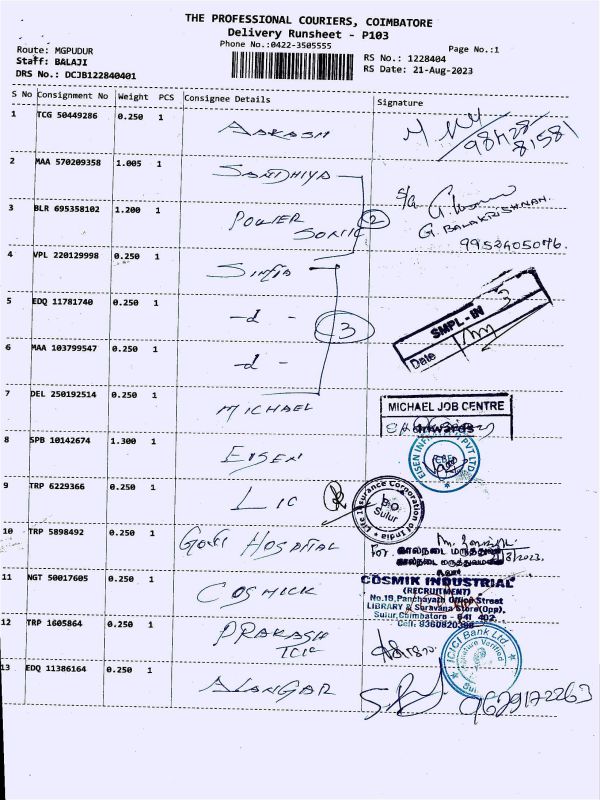 THE PROFESSIONAL COURIERS, COIMBATORE
Delivery Runsheet - P103
Phone No.:0422-3505555
Page No.:1
Route: MGPUDUR
Staff: BALAJI
DRS No.: DCJB122840401
RS No.: 1228404
RS Date: 21-Aug-2023
S No Consignment No Weight PCS Consignee Details Signature
1 TCG 50449286 0.250 1 AAKASH
98428
81581
2 MAA 570209358 1.005 1 SANDHIYA
3 BLR 695358102 1.200 1 POWER SONIC 2
G. BALAKRISHNAN.
9952405076.
4 VPL 220129998 0.250 1
5 EDQ 11781740 0.250 1 -d-
3
SMPL - IN
Date
6 MAA 103799547 0.250 1 -d-
7 DEL 250192514 0.250 1 MICHAEL
MICHAEL JOB CENTRE
8 SPB 10142674 1.300 1 EISEN
9 TRP 6229366 0.250 1 LIC
Life Insurance Corporation of India
BO
Sulur
10 TRP 5898492 0.250 1 HOSPITAL
For
கால்நடை மருத்துவ
11 NGT 50017605 0.250 1 COSMICK
COSMIK INDUSTRIAL
(RECRUITMENT)
No.19, Panchayath Office Street
LIBRARY & Saravana Store(Opp).
Sulur, Coimbatore - 641 402.
12 TRP 1605864 0.250 1 PRAKASH
ICICI Bank Ltd.
Signature Verified
13 EDQ 11386164 0.250 1 ALANGAR
9629172263